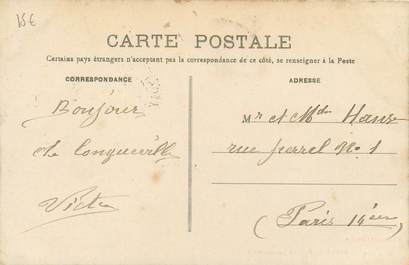 15€
CARTE POSTALE
Certains pays étrangers n'acceptant pas la correspondance de ce côté, se renseigner à la Poste
CORRESPONDANCE
ADRESSE
Bonjour
de Longueville
Mr et Mde Hans
rue No. 1
Paris 14ème